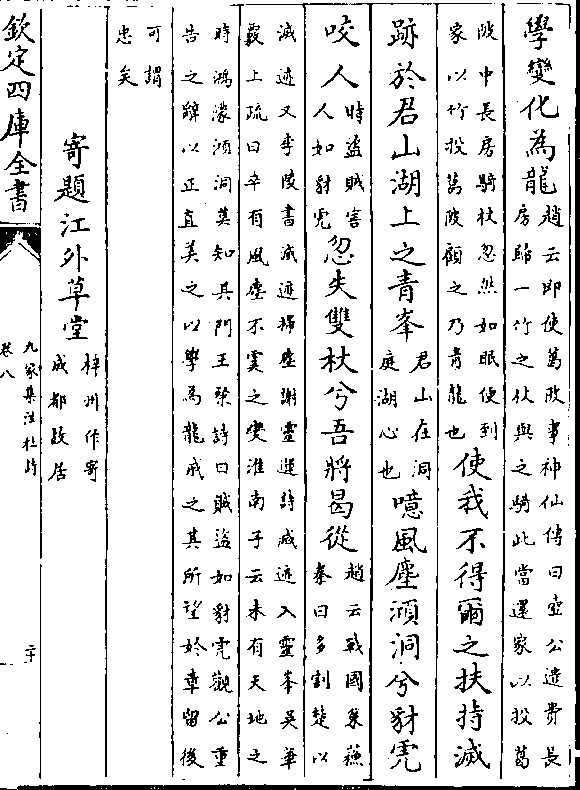 學變化為龍趙云即使葛陂事神仙傳曰壺公遣費長房歸一竹之杖與之騎此當還家以投葛
陂中長房騎杖忽然如眠便到家以竹投葛陂顧之乃青龍也使我不得爾之扶持滅
跡於君山湖上之青峯君山在洞庭湖心也噫風塵澒洞兮豺虎
咬人時盜賊害人如豺虎忽失雙杖兮吾將曷從趙云戰國策蘇秦曰多割楚以
滅迹又李陵書滅迹掃塵謝靈運詩滅迹入靈峯吳華覈上疏曰卒有風塵不虞之變淮南子云未有天地之
時鴻濛澒洞莫知其門王粲詩曰賊盜如豺虎觀公重告之辭以正直美之以學為龍戒之其所望於章留後
可謂忠矣
寄題江外草堂梓州作寄成都故居
欽定四庫全書
九家集注杜詩
卷八
二十